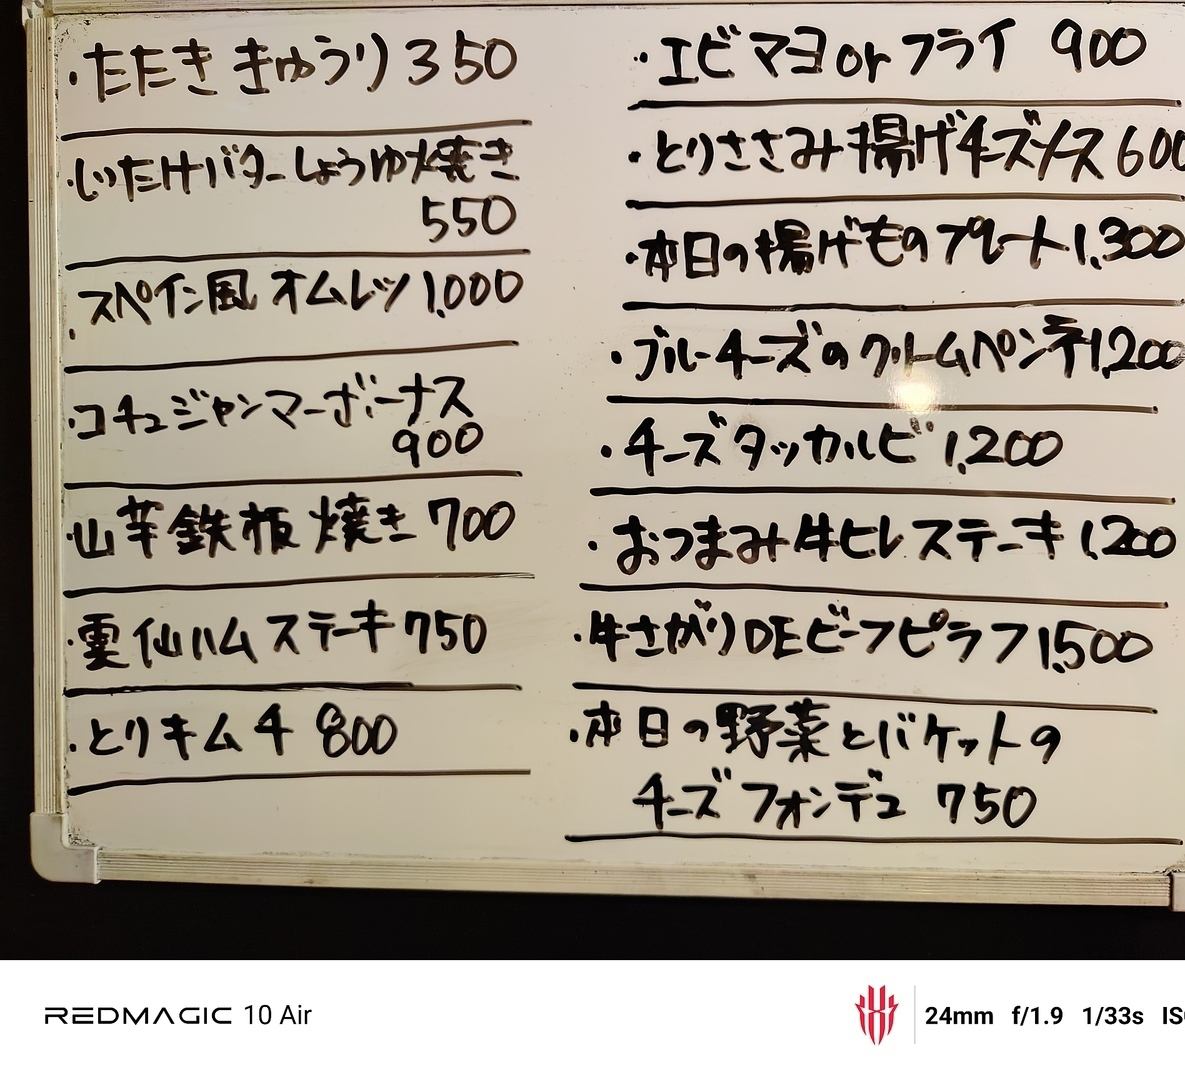 ・たたききゅうり 350
・しいたけバターしょうゆ焼き
550
・スペイン風オムレツ 1,000
・コチュジャンマーボーナス
900
・山芋鉄板焼き 700
・雲仙ハムステーキ 750
・とりキムチ 800
・エビマヨorフライ 900
・とりささみ揚げチーズソース 600
・本日の揚げものプレート 1,300
・ブルーチーズのクリームペンネ 1,200
・チーズタッカルビ 1,200
・おつまみ牛ヒレステーキ 1,200
・牛さがりDEビーフピラフ 1,500
・本日の野菜とバケットの
チーズフォンデュ 750
REDMAGIC 10 Air
24mm f/1.9 1/33s